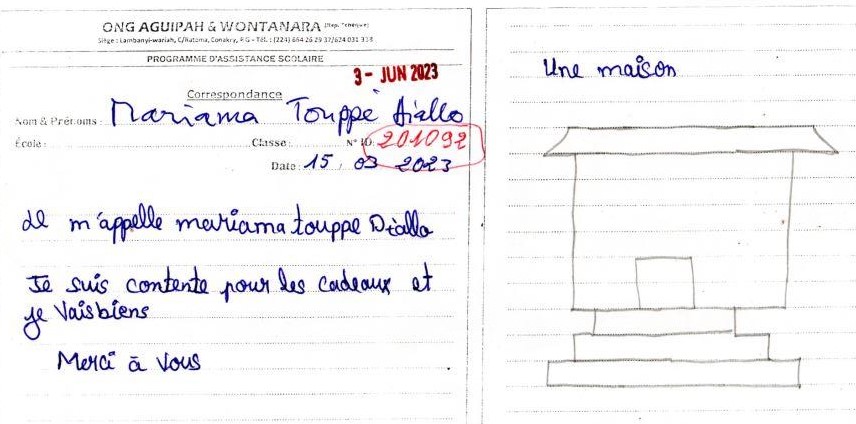 ONG AGUIPAH & WONTANARA
Siège : Lambanyi-wariah, C/Ratoma, Conakry, R.G - Tél. : (224) 664 26 29 37/624 031 318
PROGRAMME D'ASSISTANCE SCOLAIRE
3 - JUN 2023
Correspondance
Nom & Prénoms : Mariama Touppé Diallo
École : Classe : N° ID: 201092
Date : 15 / 03 2023
Je m'appelle mariama touppe Diallo
Je suis contente pour les cadeaux et
je Vais biens
Merci à Vous
Une maison